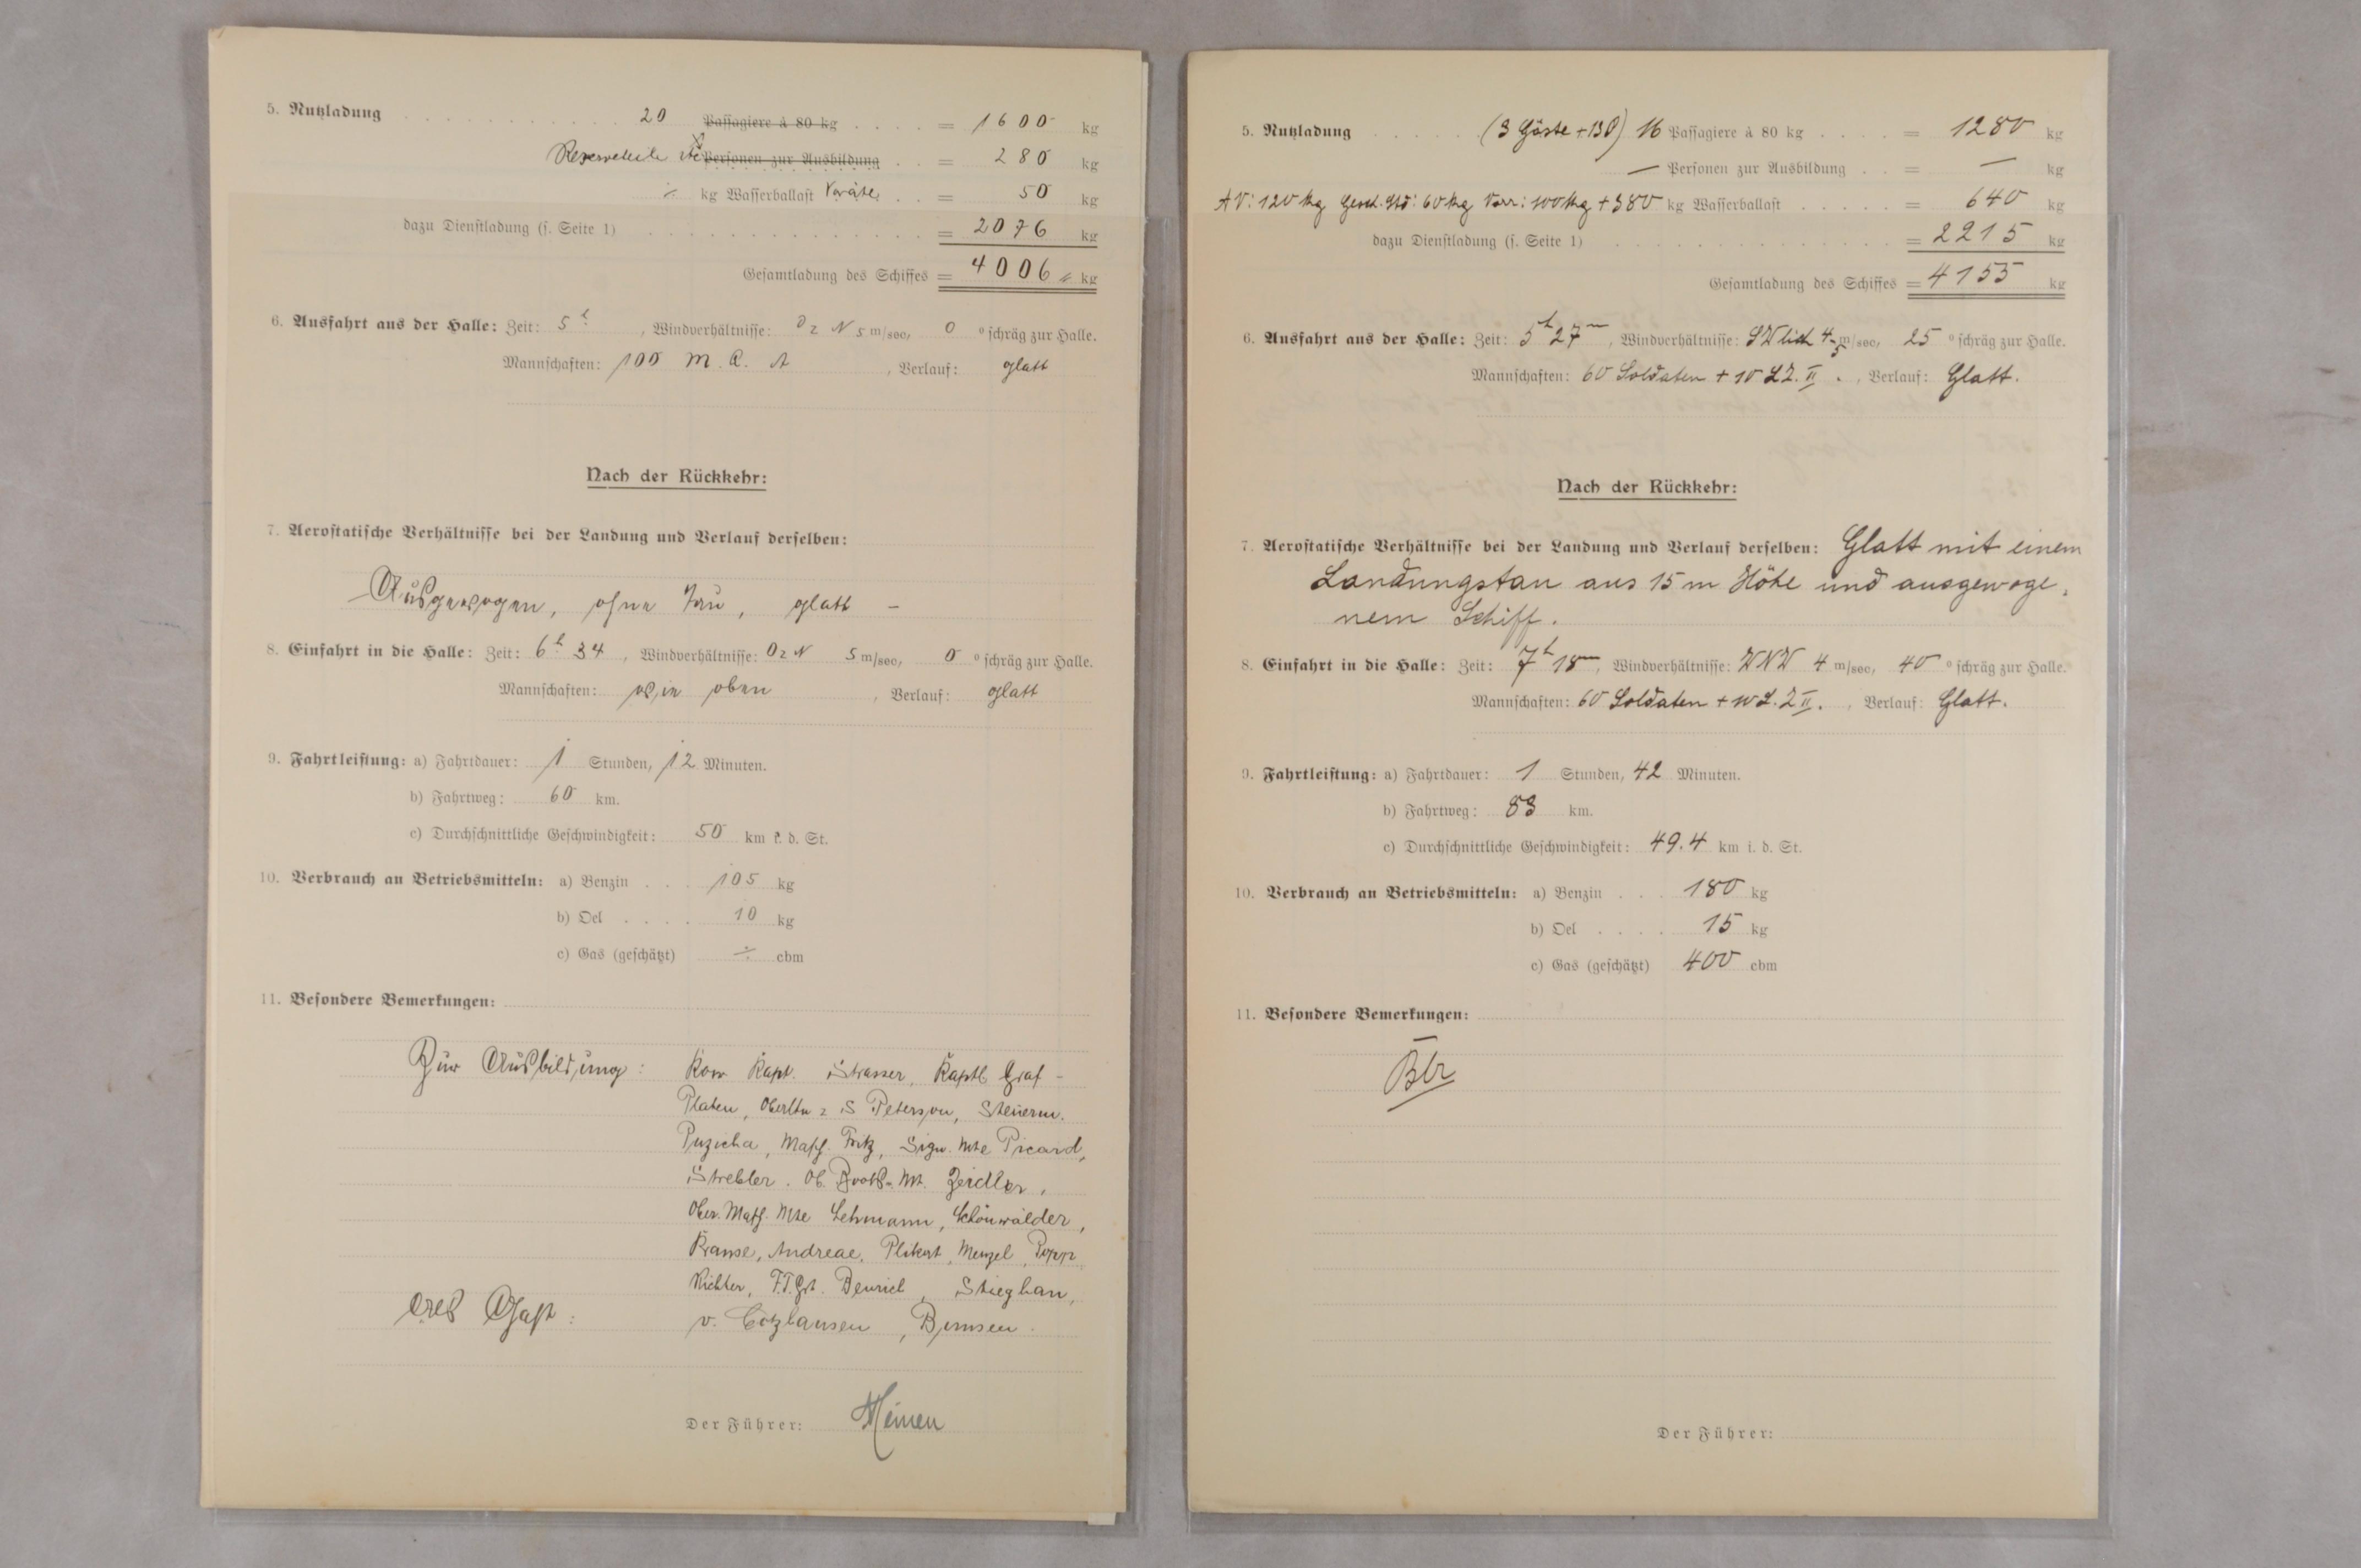 5. Nutzladung 20 Passagiere à 80 kg = 1600 kg
Reserveteile Personen zur Ausbildung = 280 kg
÷ kg Wasserballast = 50 kg
dazu Dienstladung (s. Seite 1) = 2076 kg
Gesamtladung des Schiffes = 4006 kg
6. Ausfahrt aus der Halle: Zeit: 5h , Windverhältnisse: OzN 5 m/sec, 0 ° schräg zur Halle.
Mannschaften: 100 M. A. , Verlauf: glatt
Nach der Rückkehr:
7. Aerostatische Verhältnisse bei der Landung und Verlauf derselben:
Ausgewogen, ohne Tau, glatt –
8. Einfahrt in die Halle: Zeit: 6h 34 , Windverhältnisse: OzN 5 m/sec, 0 ° schräg zur Halle.
Mannschaften: wie oben , Verlauf: glatt
9. Fahrtleistung: a) Fahrtdauer: 1 Stunden, 12 Minuten.
b) Fahrtweg: 60 km.
c) Durchschnittliche Geschwindigkeit: 50 km i. d. St.
10. Verbrauch an Betriebsmitteln: a) Benzin 105 kg
b) Oel 10 kg
c) Gas (geschätzt) ÷ cbm
11. Besondere Bemerkungen:
Zur Ausbildung: Korv Kapt. Strasser, Kaptlt Graf -
Platen, Oberltn z S Peterson, Steuerm.
Puzicha, Masch. Fritz, Sign. Mte Picard,
Strebler. Ob. Boots-Mt. Zeidler,
Ober. Masch. Mte Lehmann, Schönwälder,
Krause, Andreae, Plikat, Menzel, Popp
Richter, F.T.Gst. , Stieghan,
als Gast: v. Cotzhausen,
Der Führer: Heinen
5. Nutzladung (3 Gäste + 13O) 16 Passagiere à 80 kg = 1280 kg
— Personen zur Ausbildung = — kg
AV: 120 kg 60 kg Vorr: 100 kg + 380 kg Wasserballast = 640 kg
dazu Dienstladung (s. Seite 1) = 2215 kg
Gesamtladung des Schiffes = 4155 kg
6. Ausfahrt aus der Halle: Zeit: 5h 27m , Windverhältnisse: SWlich 4-5 m/sec, 25 ° schräg zur Halle.
Mannschaften: 60 Soldaten + 10 LZ. II. , Verlauf: Glatt.
Nach der Rückkehr:
7. Aerostatische Verhältnisse bei der Landung und Verlauf derselben: Glatt mit einem
Landungstau aus 15 m Höhe und ausgewoge-
nem Schiff.
8. Einfahrt in die Halle: Zeit: 7h 18m, Windverhältnisse: WNW 4 m/sec, 40 ° schräg zur Halle.
Mannschaften: 60 Soldaten + 10 L.Z II. , Verlauf: Glatt.
9. Fahrtleistung: a) Fahrtdauer: 1 Stunden, 42 Minuten.
b) Fahrtweg: 83 km.
c) Durchschnittliche Geschwindigkeit: 49.4 km i. d. St.
10. Verbrauch an Betriebsmitteln: a) Benzin 180 kg
b) Oel 15 kg
c) Gas (geschätzt) 400 cbm
11. Besondere Bemerkungen:
Der Führer: